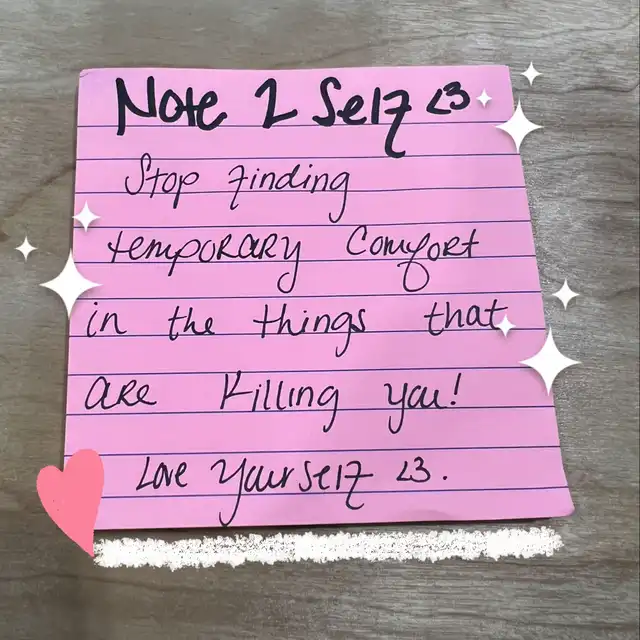 Note 2 Self <3
Stop finding
temporary comfort
in the things that
are killing you!
Love yourself <3.